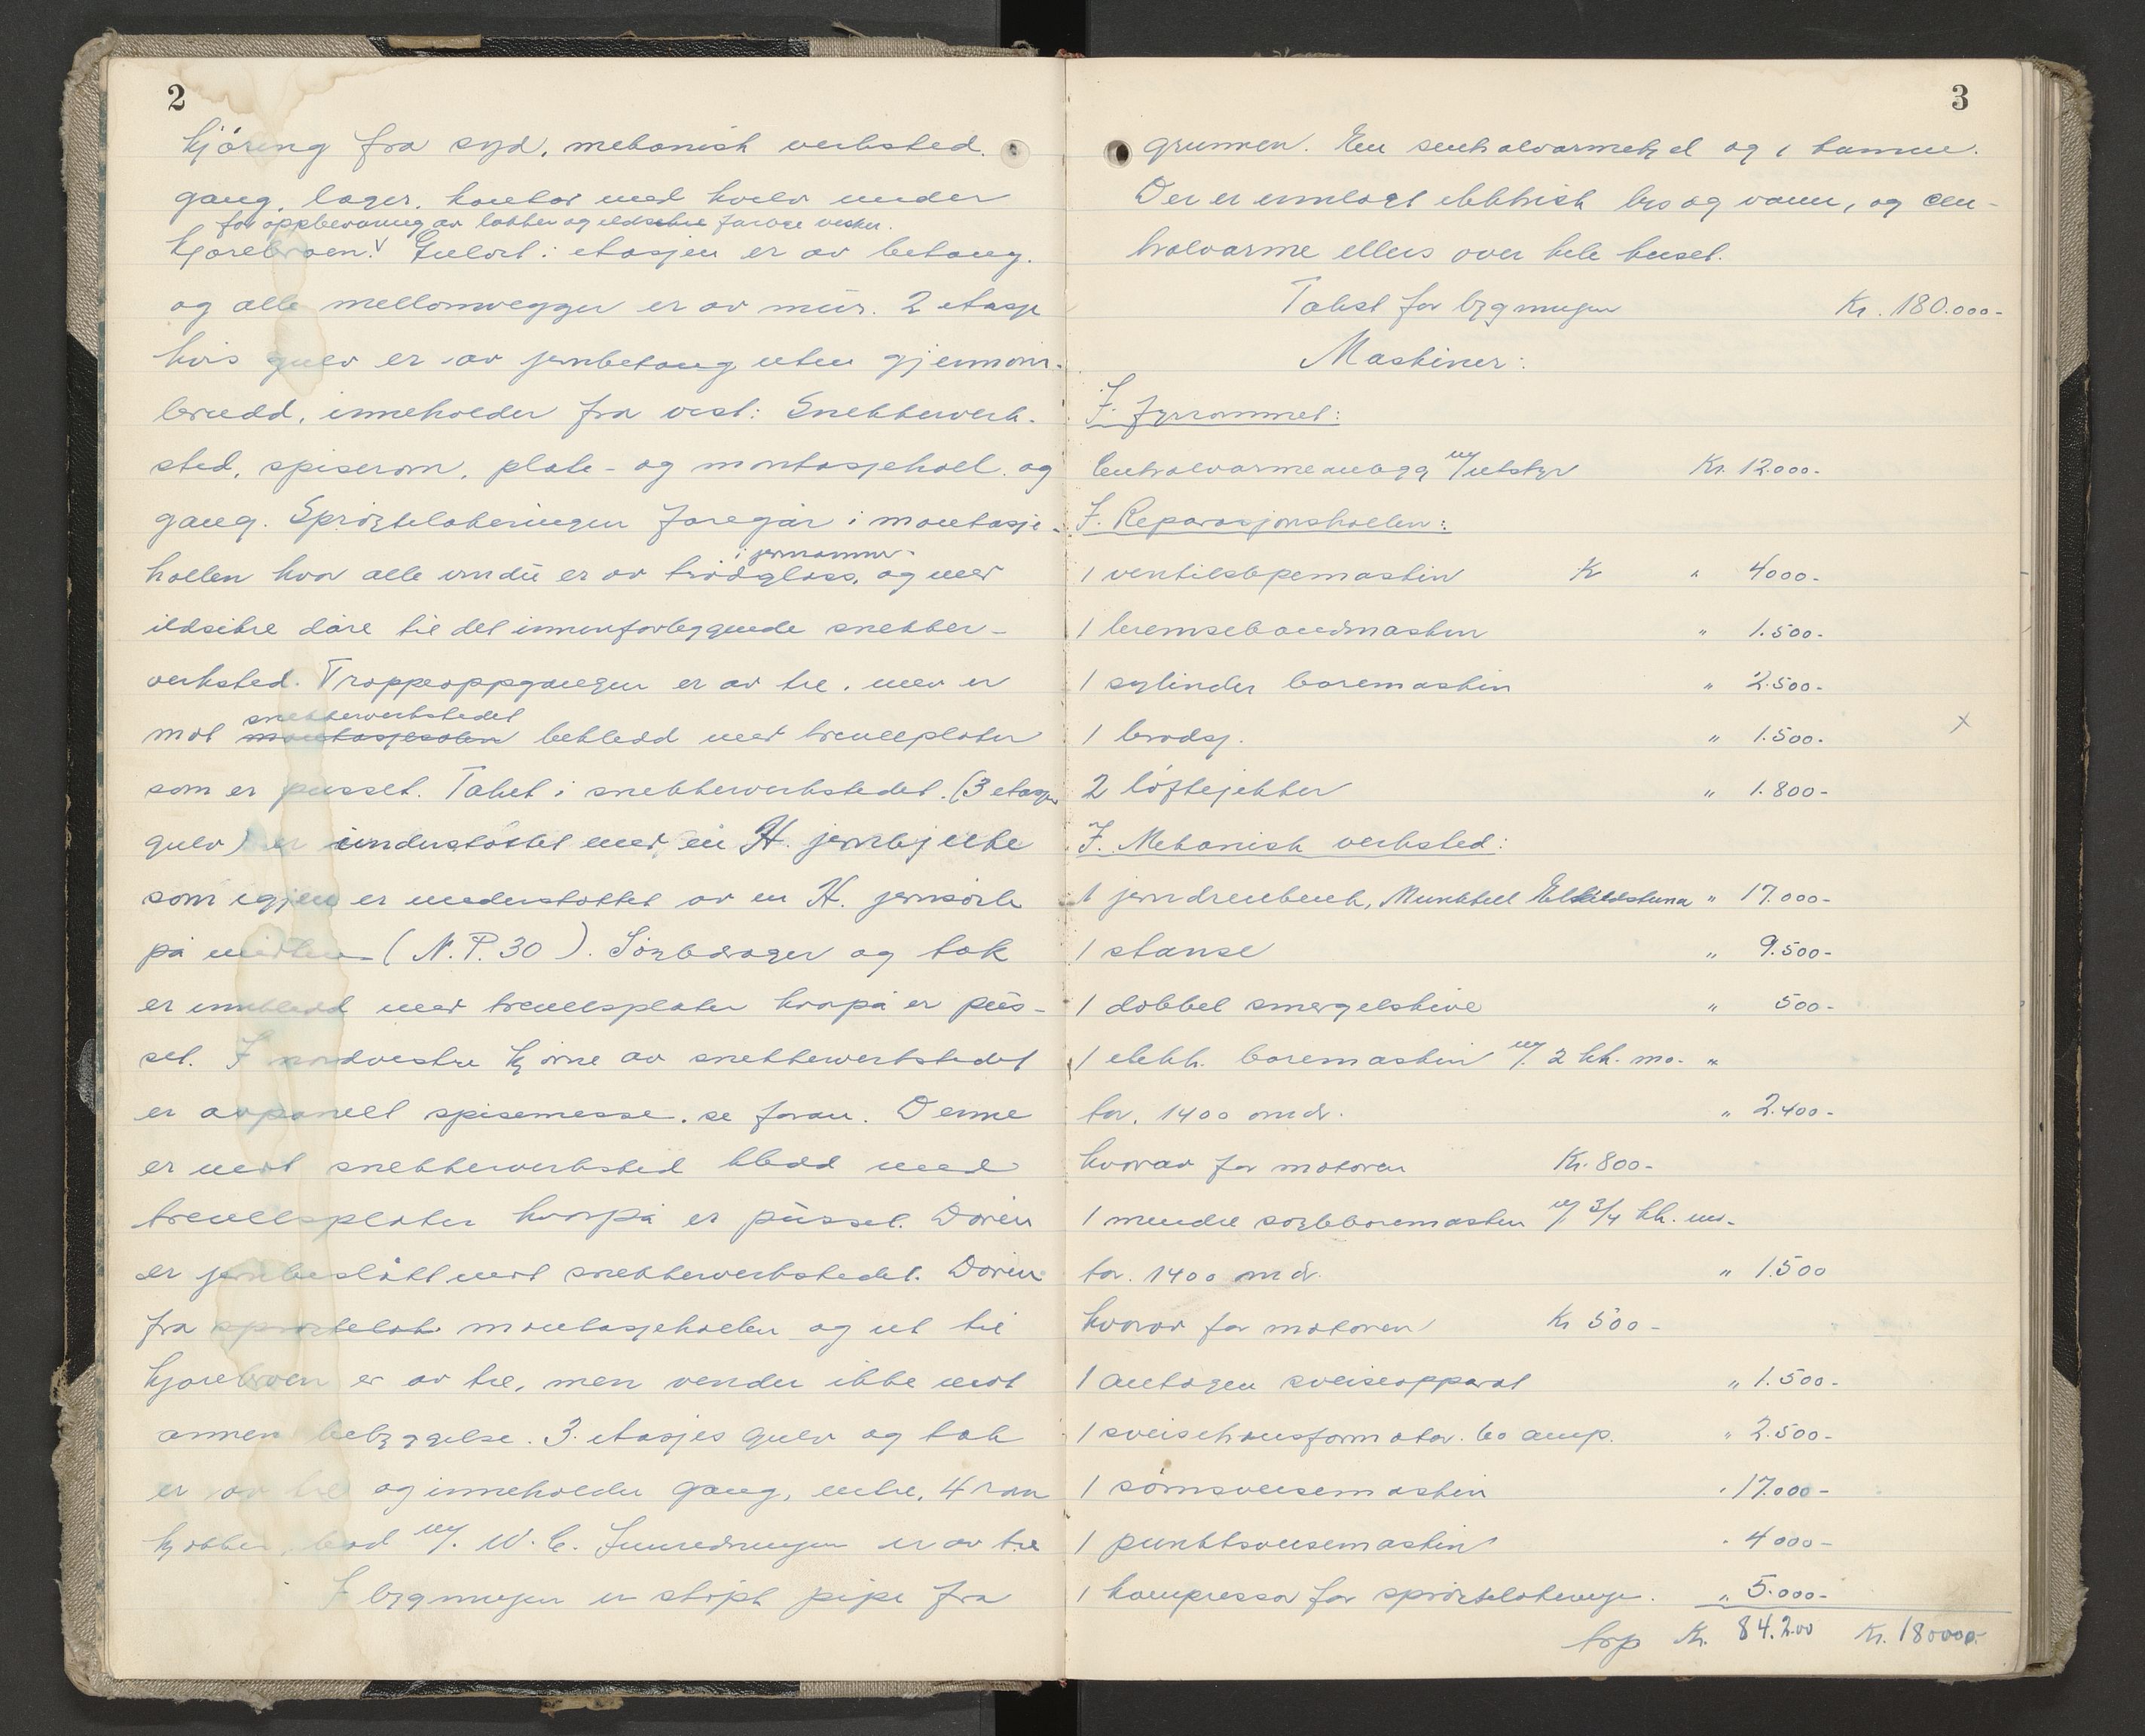 2
kjøring fra syd, mekanisk verksted,
gang, lager, kontor med hvelv under
for oppbevaring av lakker og ildsikre farlige vesker.
kjørebroen. Gulvet i etasjen er av betong.
og alle mellomvegger er av mur. 2 etasje
hvis gulv er av jernbetong uten gjennom-
brudd, inneholder fra vest: Snekkerverk-
sted, spiserom, plate- og montasjehall og
gang. Sprøytelakeringen foregår i montasje-
i jernramme
hallen hvor alle vindu er av trådglass, og med
ildsikre døre til det innenforliggende snekker-
verksted. Trappeoppgangen er av tre, men er
snekkerverkstedet
mot montasjesalen bekledd med treullplater
som er pusset. Taket i snekkerverkstedet (3 etasjes
gulv) er understøttet med en H. jernbjelke
som igjen er understøttet av en H. jernsøyle
på midten (N.P. 30). Søyle drager og tak
er innkledd med treullsplater hvorpå er pus-
set. I nordvestre hjørne av snekkerverkstedet
er avpanelt spisemesse, se foran. Denne
er mot snekkerverksted kledd med
treullsplater hvorpå er pusset. Døren
er jernbeslått mot snekkerverkstedet. Døren
fra sprøytelak. montasjehallen og ut til
kjørebroen er av tre, men vender ikke mot
annen bebyggelse. 3. etasjes gulv og tak
er av tre og inneholder gang, entre, 4 rom
kjøkken, bad m/. W.C. Innredningen er av tre
I bygningen er støpt pipe fra
3
grunnen. En sentralvarmekjel og 1 kamin.
Der er innlagt elektrisk lys og vann, og cen-
tralvarme ellers over hele huset.
Takst for bygningen Kr. 180.000-
Maskiner:
I. fyrrommet:
Centralvarmeanlegg m/utstyr Kr. 12.000-
I. Reparasjonshallen:
1 ventilslipemaskin K " 4000-
1 bremsebåndmaskin " 1.500-
1 sylinder boremaskin " 2.500-
1 brodsj. " 1.500- x
2 løftejekker " 1.800-
I. Mekanisk verksted:
1 jerndreiebenk, Munktell Eskilstuna " 17.000-
1 stanse " 9.500-
1 dobbel smergelskive " 500-
1 elektr. boremaskin m/. 2 hk. mo- "
tor, 1400 omdr. " 2.400-
hvorav for motoren Kr. 800-
1 mindre søyleboremaskin m/ 3/4 hk. mo-
tor. 1400 omdr. " 1.500
hvorav for motoren Kr 500-
1 autogen sveiseapparat " 1.500-
1 sveisetransformator. 60 amp. " 2.500-
1 sømsveisemaskin " 17.000-
1 punktsveisemaskin " 4000-
1 kompressor for sprøytelakering. " 5.000-
trp Kr. 84.200 Kr. 180000-